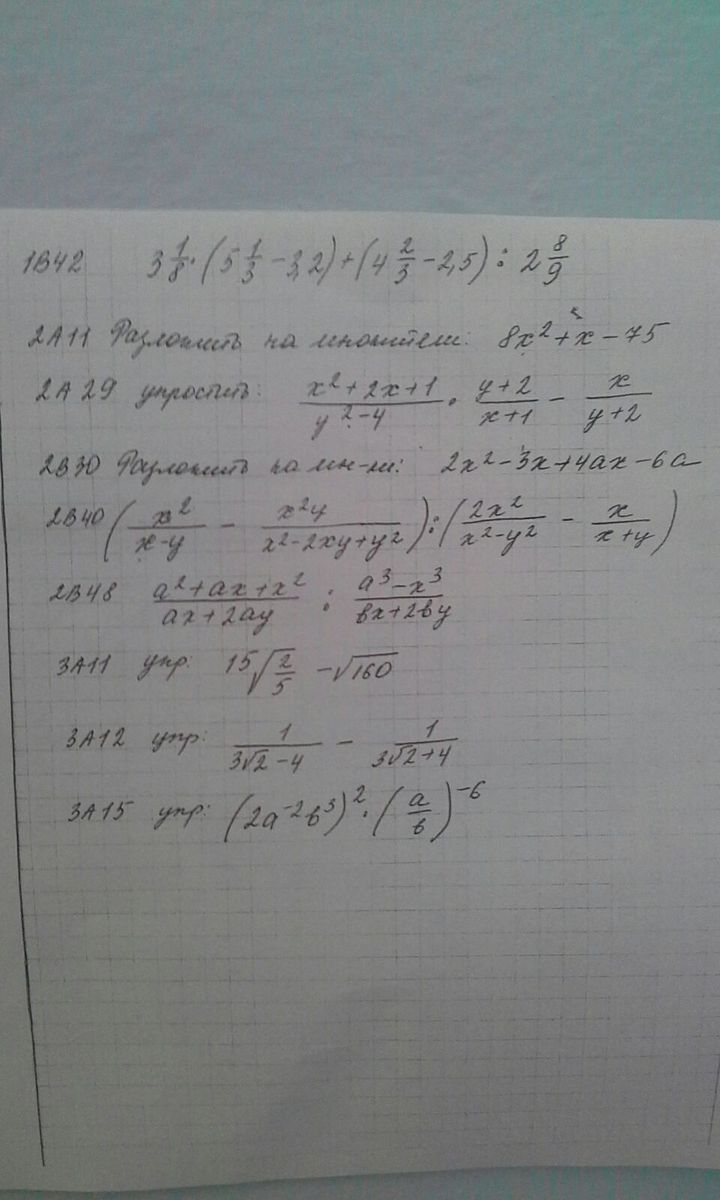 1В42 3 1/8 · (5 1/3 − 3,2) + (4 2/3 − 2,5) : 2 8/9
2А11 Разложить на множители: 8x² + x − 75
2А29 упростить: (x² + 2x + 1)/(y² − 4) · (y + 2)/(x + 1) − x/(y + 2)
2В30 Разложить на мн-ли: 2x² − 3x + 4ax − 6a
2В40 (x²/(x − y) − x²y/(x² − 2xy + y²)) : (2x²/(x² − y²) − x/(x + y))
2В48 (a² + ax + x²)/(ax + 2ay) : (a³ − x³)/(вx + 2вy)
3А11 упр: 15√(2/5) − √160
3А12 упр: 1/(3√2 − 4) − 1/(3√2 + 4)
3А15 упр: (2a⁻²в³)² · (a/в)⁻⁶